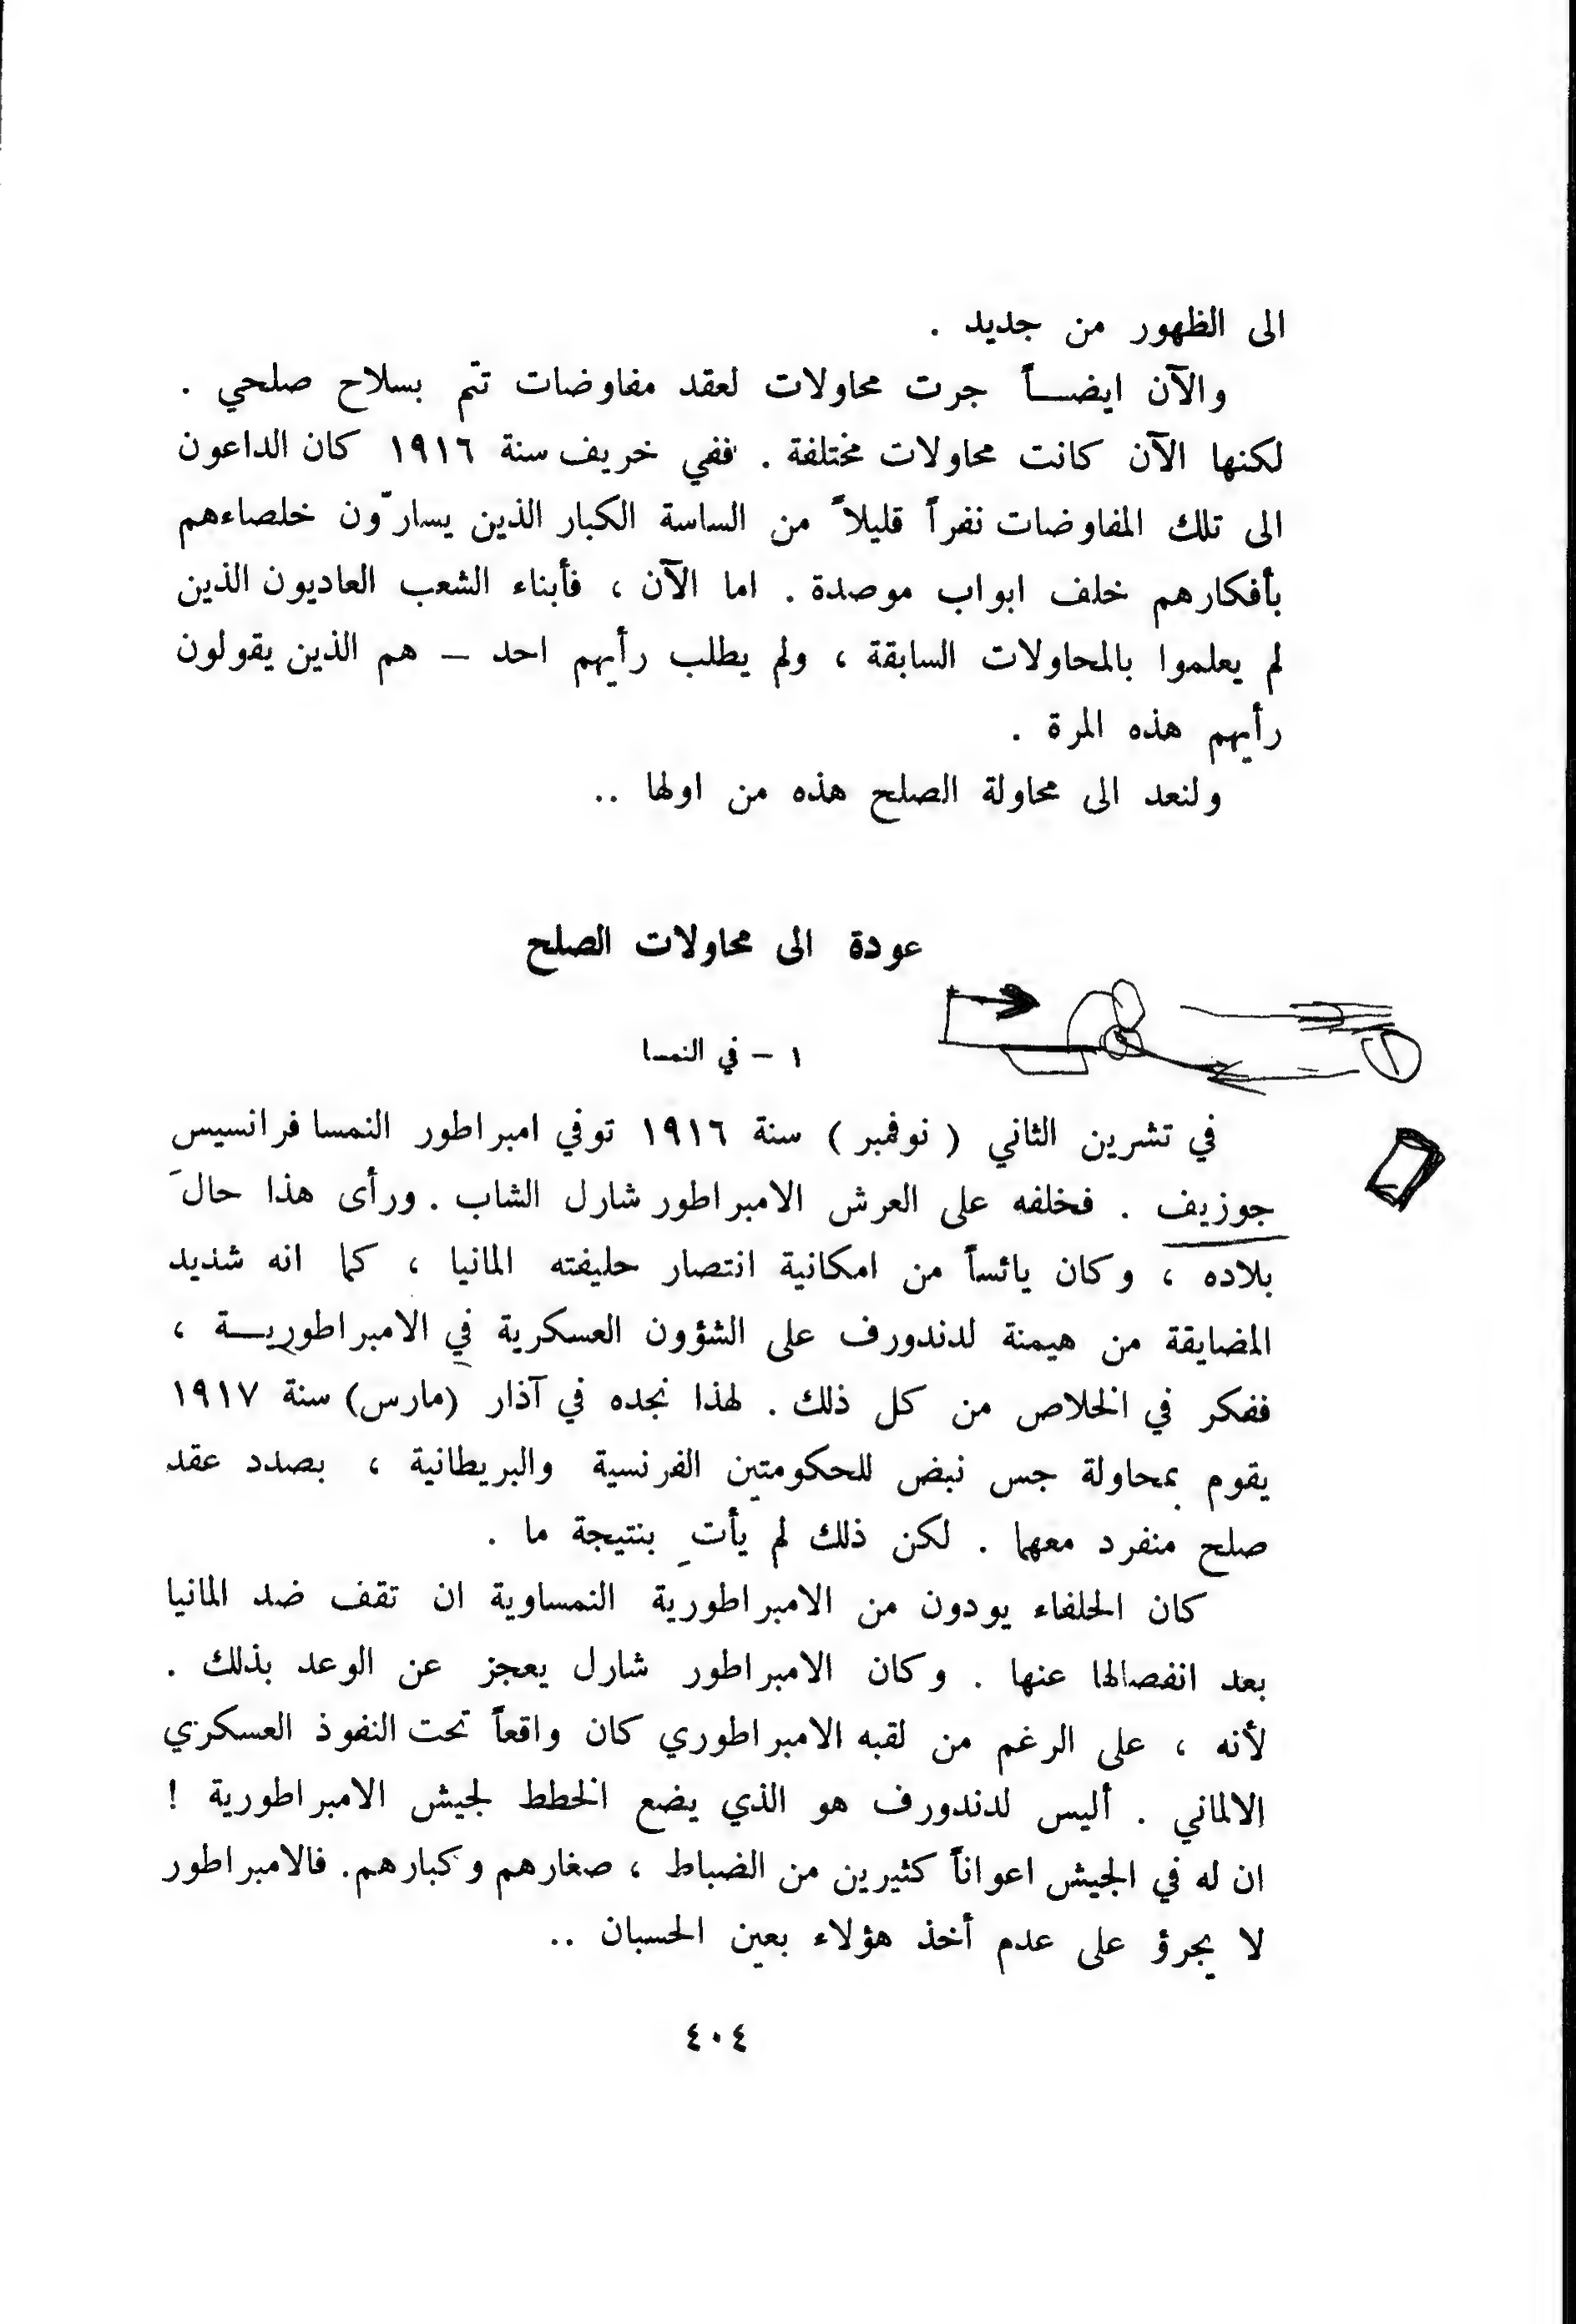 الى الظهور من جديد .
والآن ايضـــاً جرت محاولات لعقد مفاوضات تتم بسلاح صلحي .
لكنها الآن كانت محاولات مختلفة . ففي خريف سنة ١٩١٦ كان الداعون
الى تلك المفاوضات نفراً قليلاً من الساسة الكبار الذين يسارّون خلصاءهم
بأفكارهم خلف ابواب موصدة . اما الآن ، فأبناء الشعب العاديون الذين
لم يعلموا بالمحاولات السابقة ، ولم يطلب رأيهم احد – هم الذين يقولون
رأيهم هذه المرة .
ولنعد الى محاولة الصلح هذه من اولها ..
عودة الى محاولات الصلح
١ – في النمسا
في تشرين الثاني ( نوفمبر ) سنة ١٩١٦ توفي امبراطور النمسا فرانسيس
جوزيف . فخلفه على العرش الامبراطور شارل الشاب . ورأى هذا حالَ
بلاده ، وكان يائساً من امكانية انتصار حليفته المانيا ، كما انه شديد
المضايقة من هيمنة لدندورف على الشؤون العسكرية في الامبراطوريـــة ،
ففكر في الخلاص من كل ذلك . لهذا نجده في آذار (مارس) سنة ١٩١٧
يقوم بمحاولة جس نبض للحكومتين الفرنسية والبريطانية ، بصدد عقد
صلح منفرد معهما . لكن ذلك لم يأتِ بنتيجة ما .
كان الحلفاء يودون من الامبراطورية النمساوية ان تقف ضد المانيا
بعد انفصالها عنها . وكان الامبراطور شارل يعجز عن الوعد بذلك .
لأنه ، على الرغم من لقبه الامبراطوري كان واقعاً تحت النفوذ العسكري
الالماني . أليس لدندورف هو الذي يضع الخطط لجيش الامبراطورية !
ان له في الجيش اعواناً كثيرين من الضباط ، صغارهم وكبارهم. فالامبراطور
لا يجرؤ على عدم أخذ هؤلاء بعين الحسبان ..
٤٠٤